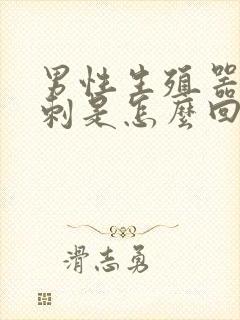 男性生殖器
刺是怎麼回
滑志勇